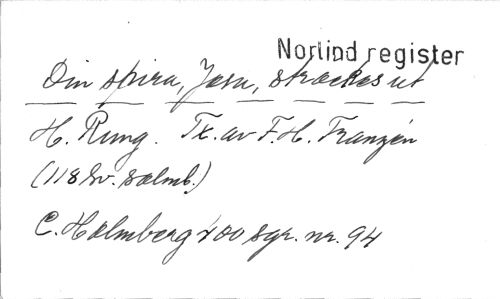 Norlind register
Din spira, Jesu, sträckes ut
H. Rung. Tx. av F. H. Franzén
(118 Sv. psalmb.)
C. Holmberg 200 sgr. nr. 94